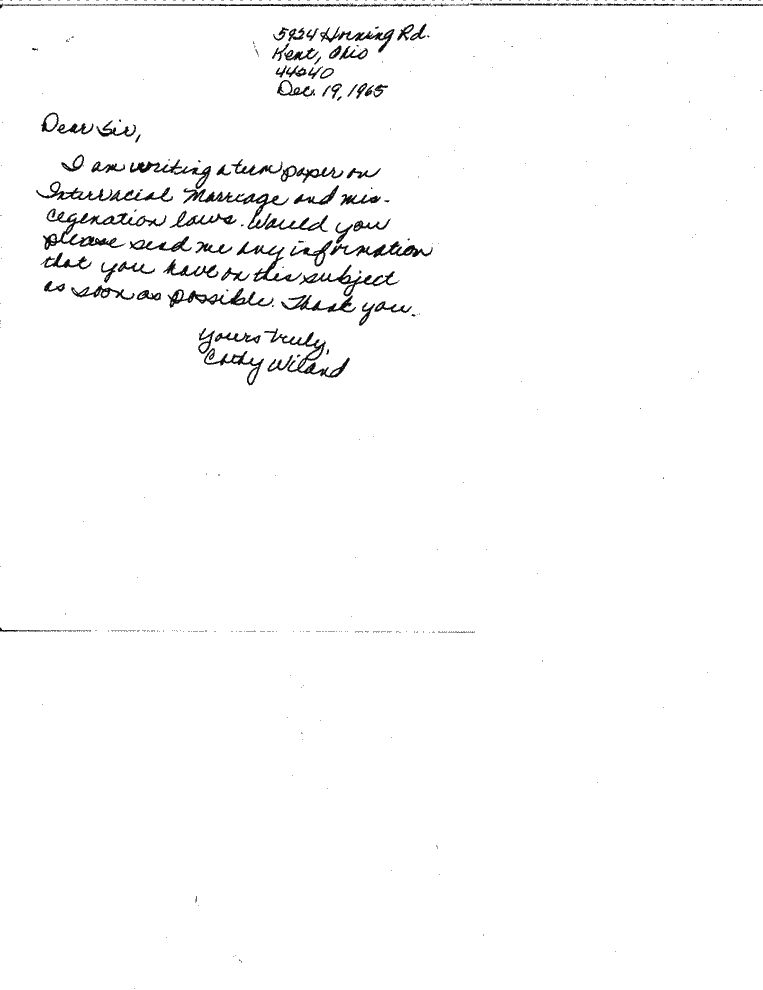 5924 Horning Rd.
Kent, Ohio
44240
Dec. 19, 1965
Dear Sir,
I am writing a term paper on
Interracial Marriage and mis-
cegenation laws. Would you
please send me any information
that you have on this subject
as soon as possible. Thank you.
Yours truly,
Cathy Wiland